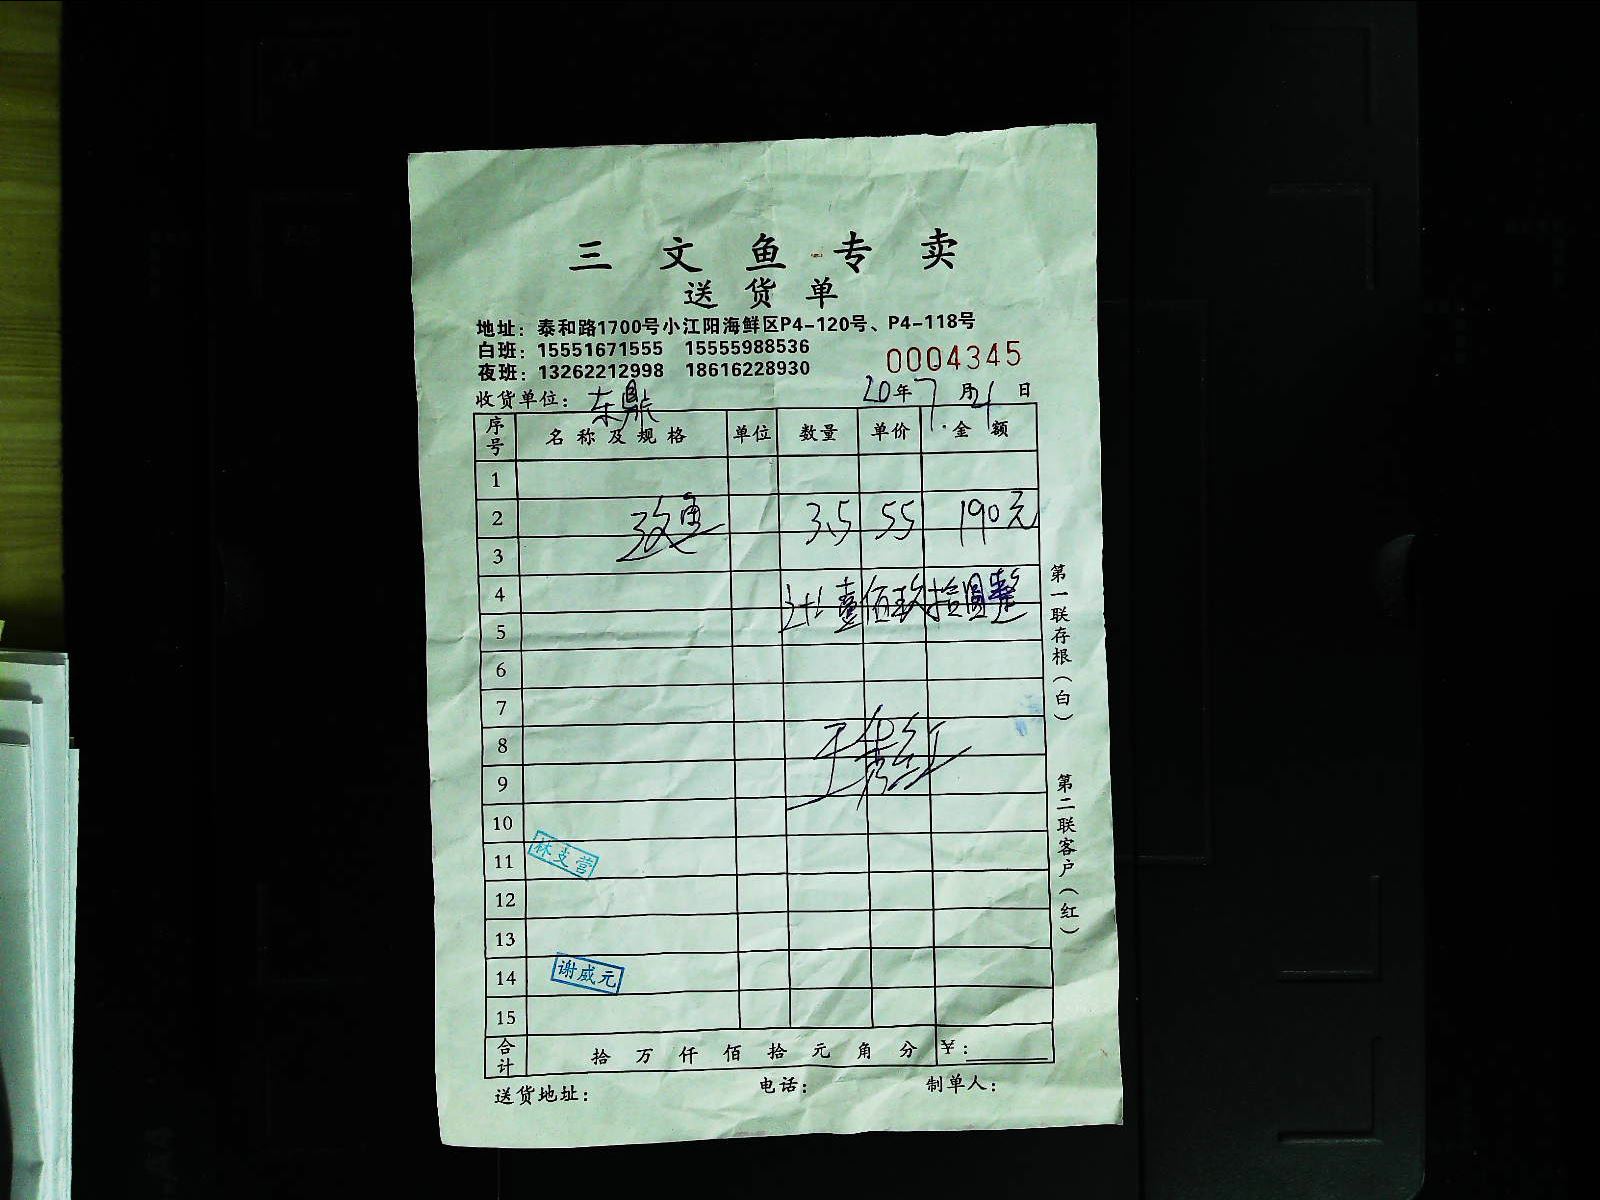 三文鱼专卖
送货单
地址：泰和路1700号小江阳海鲜区P4-120号、P4-118号
白班：15551671555 15555988536
夜班：13262212998 18616228930
0004345
收货单位：东鼎 20年7月4日
序号 名称及规格 单位 数量 单价 金额
1
2 三文鱼 3.5 55 190元
3
4 壹佰玖拾圆整
5
6
7
8
9
10
11 林支营
12
13
14 谢威元
15
合计 拾万仟佰拾元角分 ¥：
送货地址： 电话： 制单人：
第一联存根（白）
第二联客户（红）